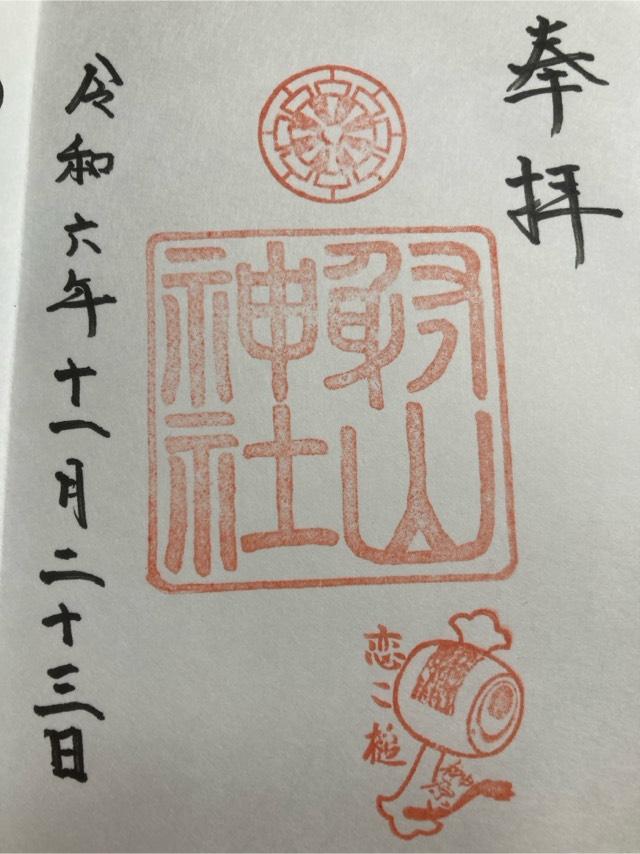 奉拝
射山
神社
恋こ槌
令和六年十一月二十三日